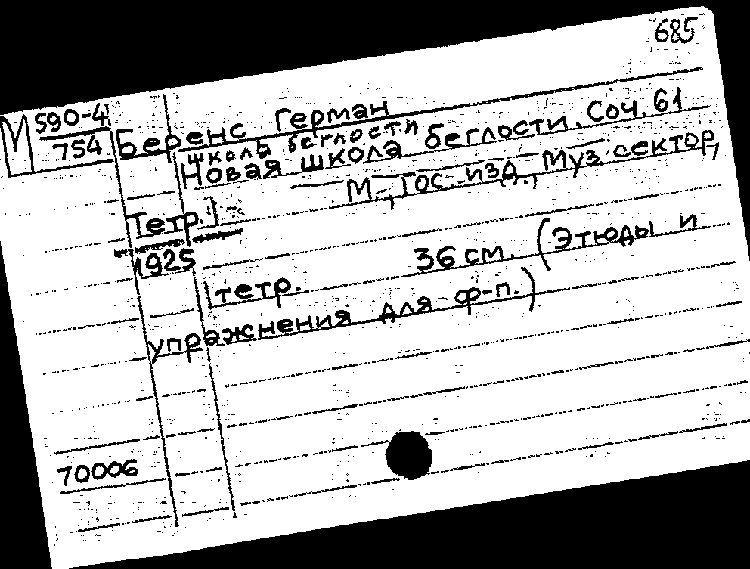 685
М 590-4
754
Беренс Герман
школа беглости
Новая школа беглости. Соч. 61
М-, Гос. изд., Муз. сектор,
Тетр. 1
1925
1 тетр. 36 см. (Этюды и
упражнения для ф-п.)
70006